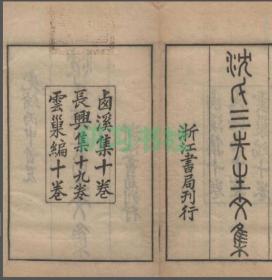 沈氏三先生文集
浙江書局刊行
西溪集十卷
長興集十九卷
雲巢編十卷